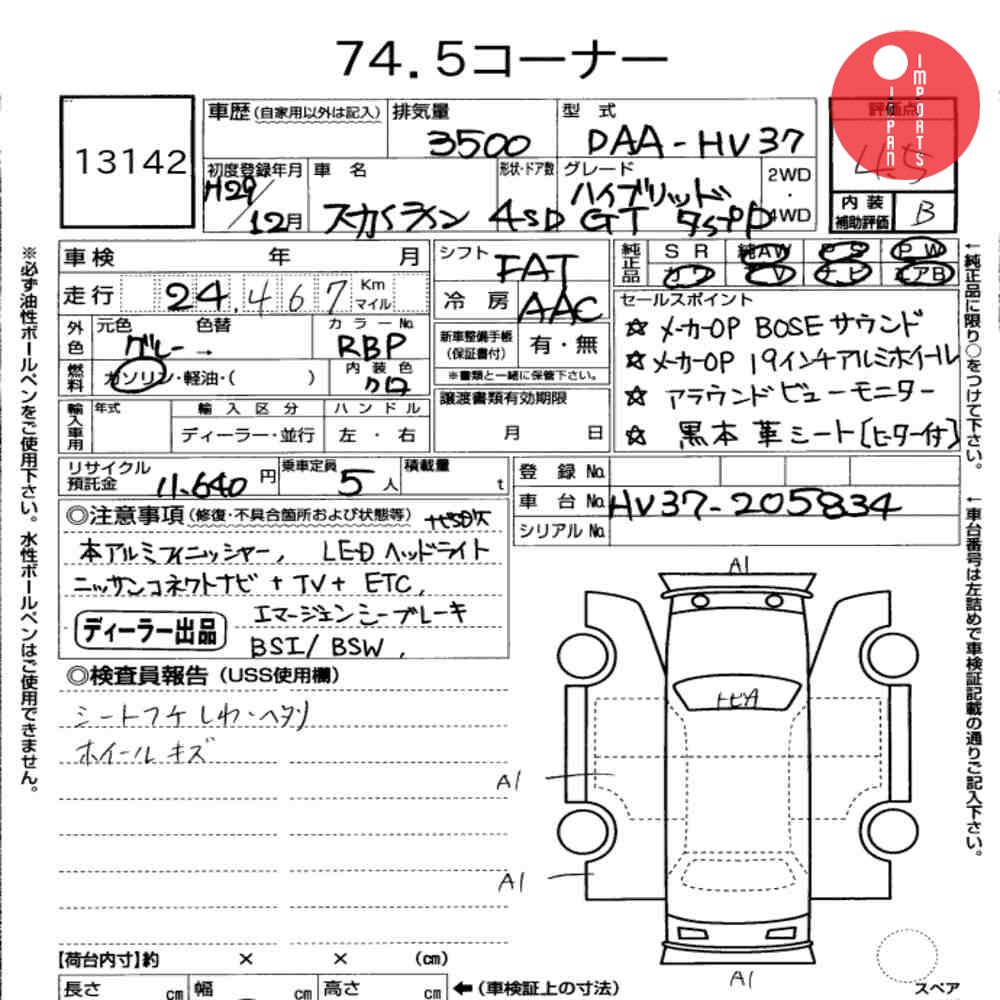 74.5コーナー
IMPORTS
JAPAN
13142
車歴(自家用以外は記入)
排気量
3500
型 式
DAA-HV37
評価点
4.5
初度登録年月
H29/12月
車 名
スカイライン
形状・ドア数
4SD
グレード
ハイブリッド
GT タイプP
2WD
・
4WD
内 装
補助評価
B
車検 年 月
シフト
FAT
純正品
SR 純AW PS PW
カワ TV ナビ エアB
走行 24,467 Km
マイル
冷 房
AAC
セールスポイント
☆ メーカーOP BOSEサウンド
☆ メーカーOP 19インチアルミホイール
☆ アラウンドビューモニター
☆ 黒本革シート(ヒーター付)
外色
元色 色替
グレー →
カラーNo.
RBP
新車整備手帳
(保証書付)
有・無
※書類と一緒に保管下さい。
燃料
ガソリン・軽油・( )
内装色
クロ
輸入車用
年式
輸入区分
ディーラー・並行
ハンドル
左・右
譲渡書類有効期限
月 日
リサイクル
預託金
11,640 円
乗車定員
5 人
積載量
t
登録 No.
車台 No. HV37-205834
シリアル No.
◎注意事項(修復・不具合箇所および状態等)
本アルミフィニッシャー, LEDヘッドライト
ニッサンコネクトナビ + TV + ETC,
エマージェンシーブレーキ
ディーラー出品
BSI/BSW,
◎検査員報告(USS使用欄)
シートコゲ しわ・ヘタリ
ホイールキズ
A1
トビA
A1
A1
A1
【荷台内寸】約 × × (cm)
長さ cm
幅 cm
高さ cm
←(車検証上の寸法)
スペア
※必ず油性ボールペンをご使用下さい。水性ボールペンはご使用できません。
←純正品に限り○をつけて下さい。
←車台番号は左詰めで車検証記載の通りご記入下さい。